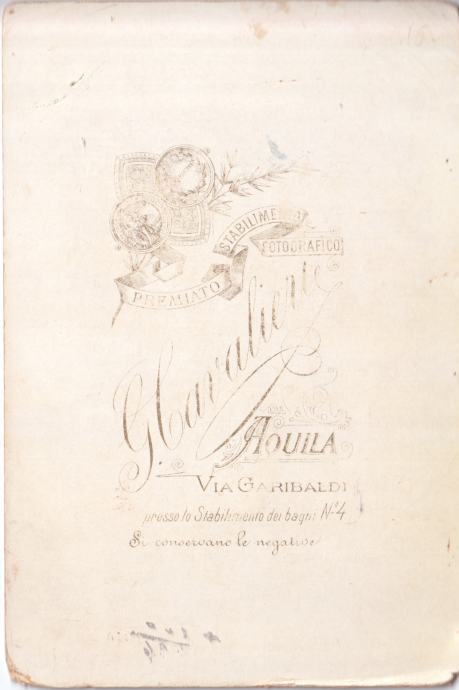 PREMIATO
STABILIMENTO
FOTOGRAFICO
G. Cavaliere
AQUILA
VIA GARIBALDI
presso lo Stabilimento dei bagni Nº4
Si conservano le negative